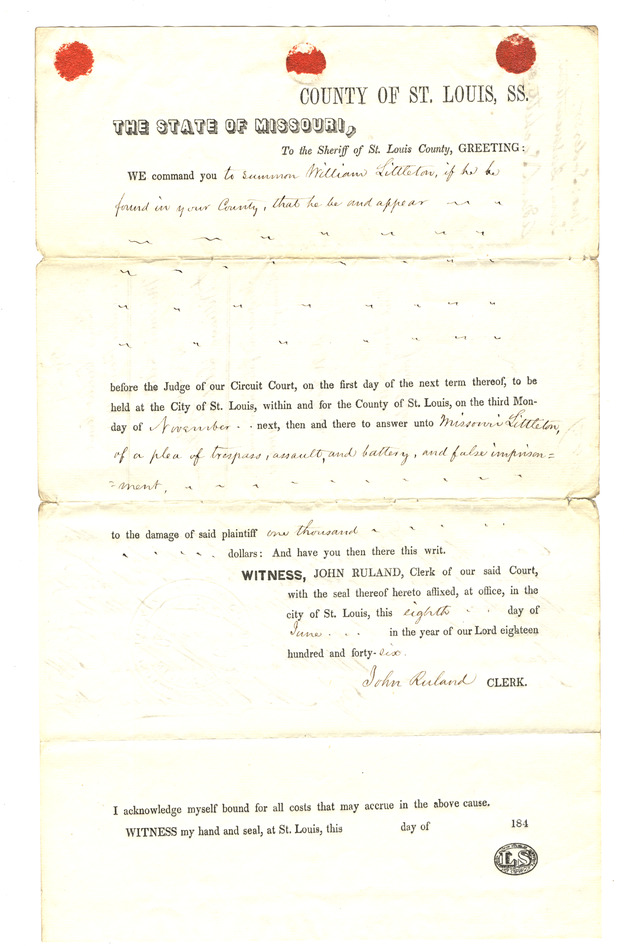 COUNTY OF ST. LOUIS, SS.
THE STATE OF MISSOURI,
To the Sheriff of St. Louis County, GREETING:
WE command you to summon William Littleton, if he be
found in your County, that he be and appear
before the Judge of our Circuit Court, on the first day of the next term thereof, to be
held at the City of St. Louis, within and for the County of St. Louis, on the third Mon-
day of November next, then and there to answer unto Missouri Littleton,
of a plea of trespass, assault, and battery, and false imprison=
=ment,
to the damage of said plaintiff one thousand
dollars: And have you then there this writ.
WITNESS, JOHN RULAND, Clerk of our said Court,
with the seal thereof hereto affixed, at office, in the
city of St. Louis, this eighth day of
June in the year of our Lord eighteen
hundred and forty-six.
John Ruland CLERK.
I acknowledge myself bound for all costs that may accrue in the above cause.
WITNESS my hand and seal, at St. Louis, this day of 184
LS